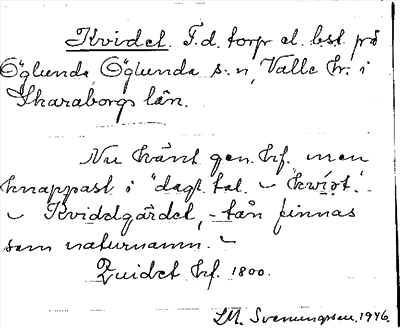 Kvidet. F.d. torp el. bst. på
Öglunda, Öglunda s:n, Valle hr. i
Skaraborgs län.
Nu känt gen. kf. men
knappast i "dagl. tal. –
– Kvidelgärdet, –
som naturnamn. –
Quidet kf. 1800.
LM. Svenungsson. 1946.